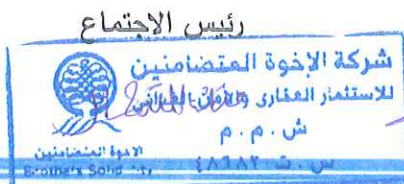 رئيس الاجتماع
شركة الإخوة المتضامنين
للاستثمار العقارى
ش . م . م
س . ت ٤٨٦٨٢
الاخوة المتضامنين
Brother's Solid